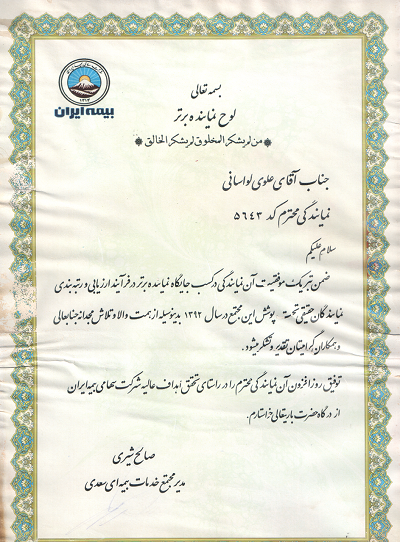 بیمه ایران
۱۳۱۴
بسمه تعالی
لوح نماینده برتر
من لم یشکر المخلوق لم یشکر الخالق
جناب آقای علوی لواسانی
نمایندگی محترم کد ۵۶۴۳
سلام علیکم
ضمن تبریک موفقیت آن نمایندگی در کسب جایگاه نماینده برتر در فرآیند ارزیابی و رتبه بندی
نمایندگان حقیقی تحت پوشش این مجتمع در سال ۱۳۹۲ بدینوسیله از همت والا و تلاش مجدانه جنابعالی
و همکاران گرامیتان تقدیر و تشکر میشود.
توفیق روز افزون آن نمایندگی محترم را در راستای تحقق اهداف عالیه شرکت سهامی بیمه ایران
از درگاه حضرت باریتعالی خواستارم.
صالح شیری
مدیر مجتمع خدمات بیمه ای سعدی